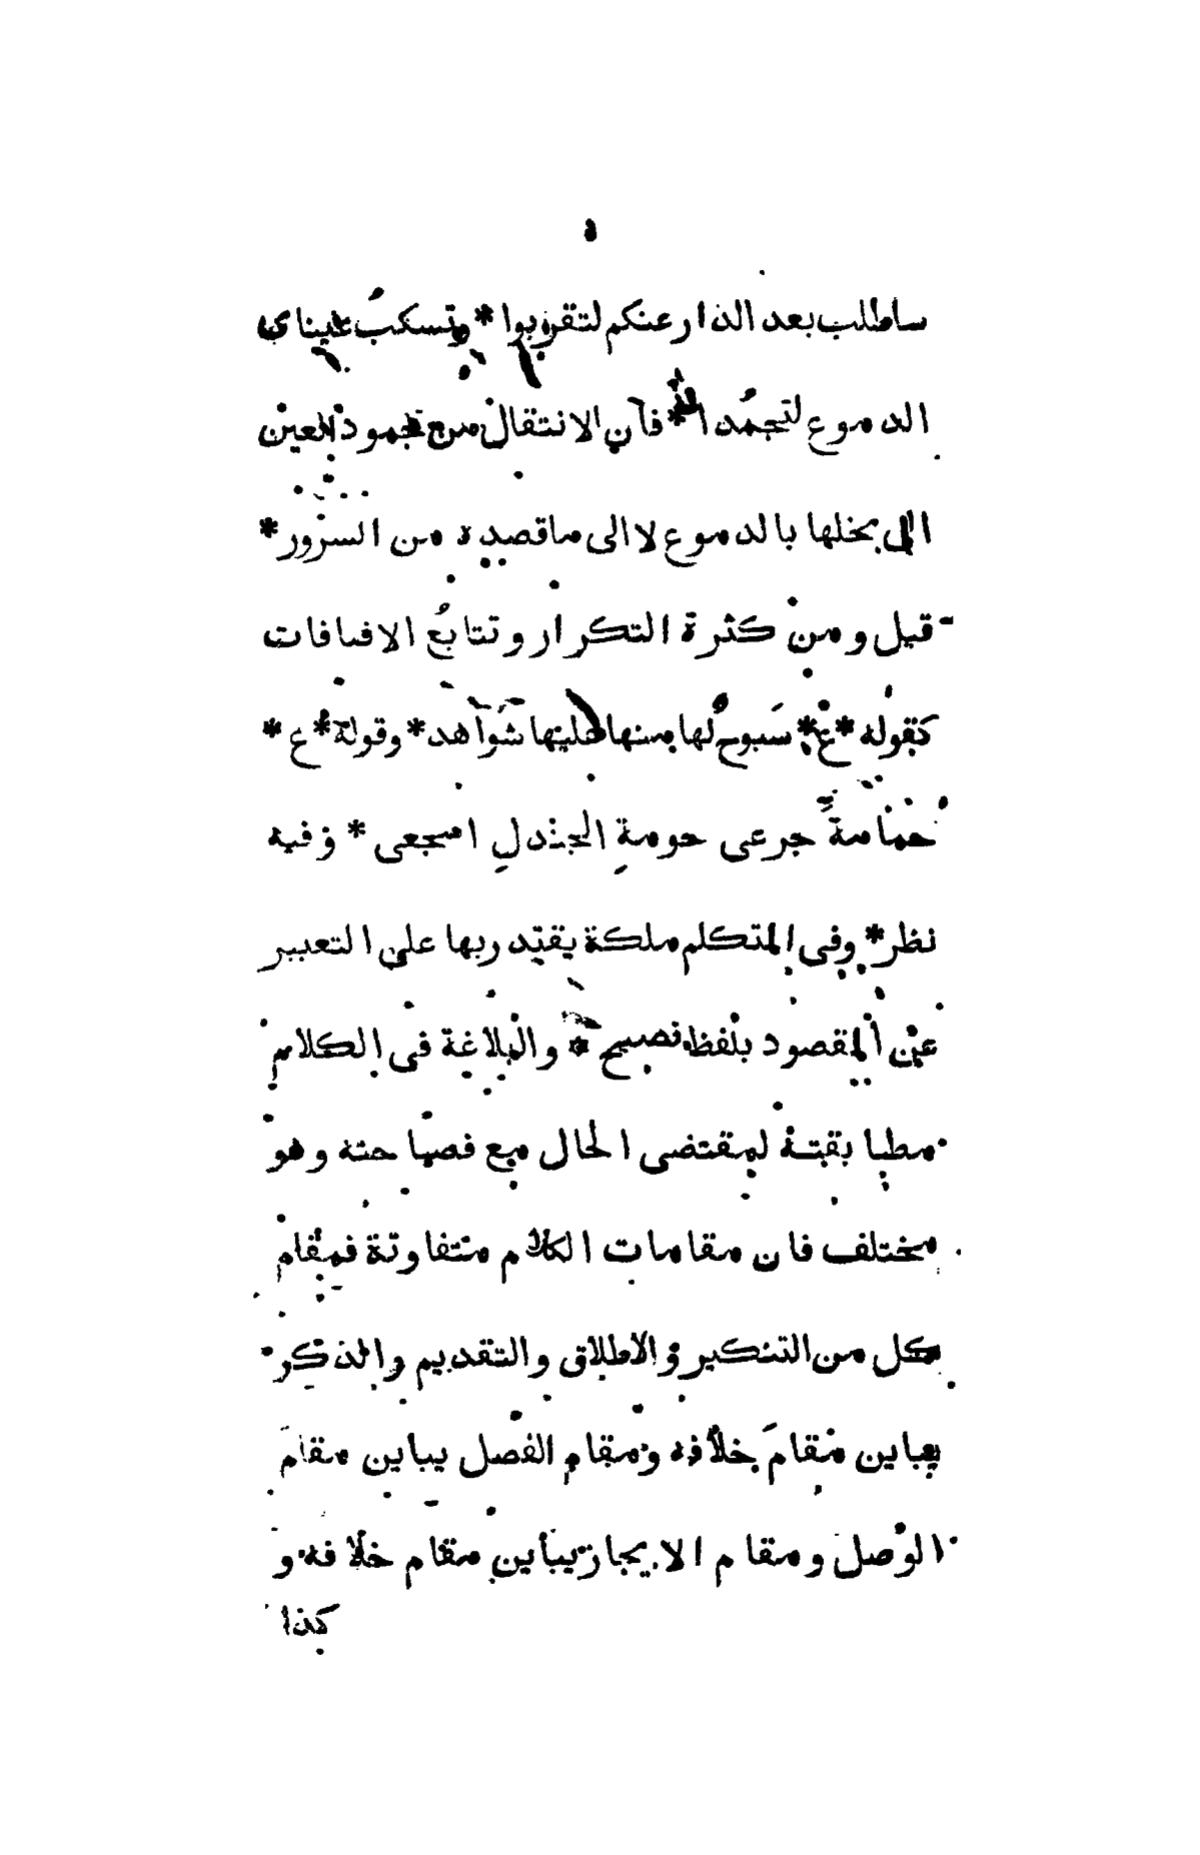 ٥
ساطلب بعد الدار عنكم لتقربوا * وتسكبُ عيناى
الدموع لتجمُدا * فان الانتقال من جمود العين
الى بخلها بالدموع لا الى ما قصده من السرور *
قيل ومن كثرة التكرار وتتابُع الاضافات
كقوله * ع * سَبوحٌ لها منها عليها شواهد * وقوله * ع *
حمامةَ جرعى حومةِ الجندلِ اسجعى * وفيه
نظر * وفى المتكلم ملكة يقتدر بها على التعبير
عن المقصود بلفظ فصيح * والبلاغة فى الكلام
مطابقته لمقتضى الحال مع فصاحته وهو
مختلف فان مقامات الكلام متفاوتة فمقام
كل من التنكير والاطلاق والتقديم والذكر
يباين مقامَ خلافه ومقام الفصل يباين مقامَ
الوصل ومقام الايجاز يباين مقام خلافه و
كذا